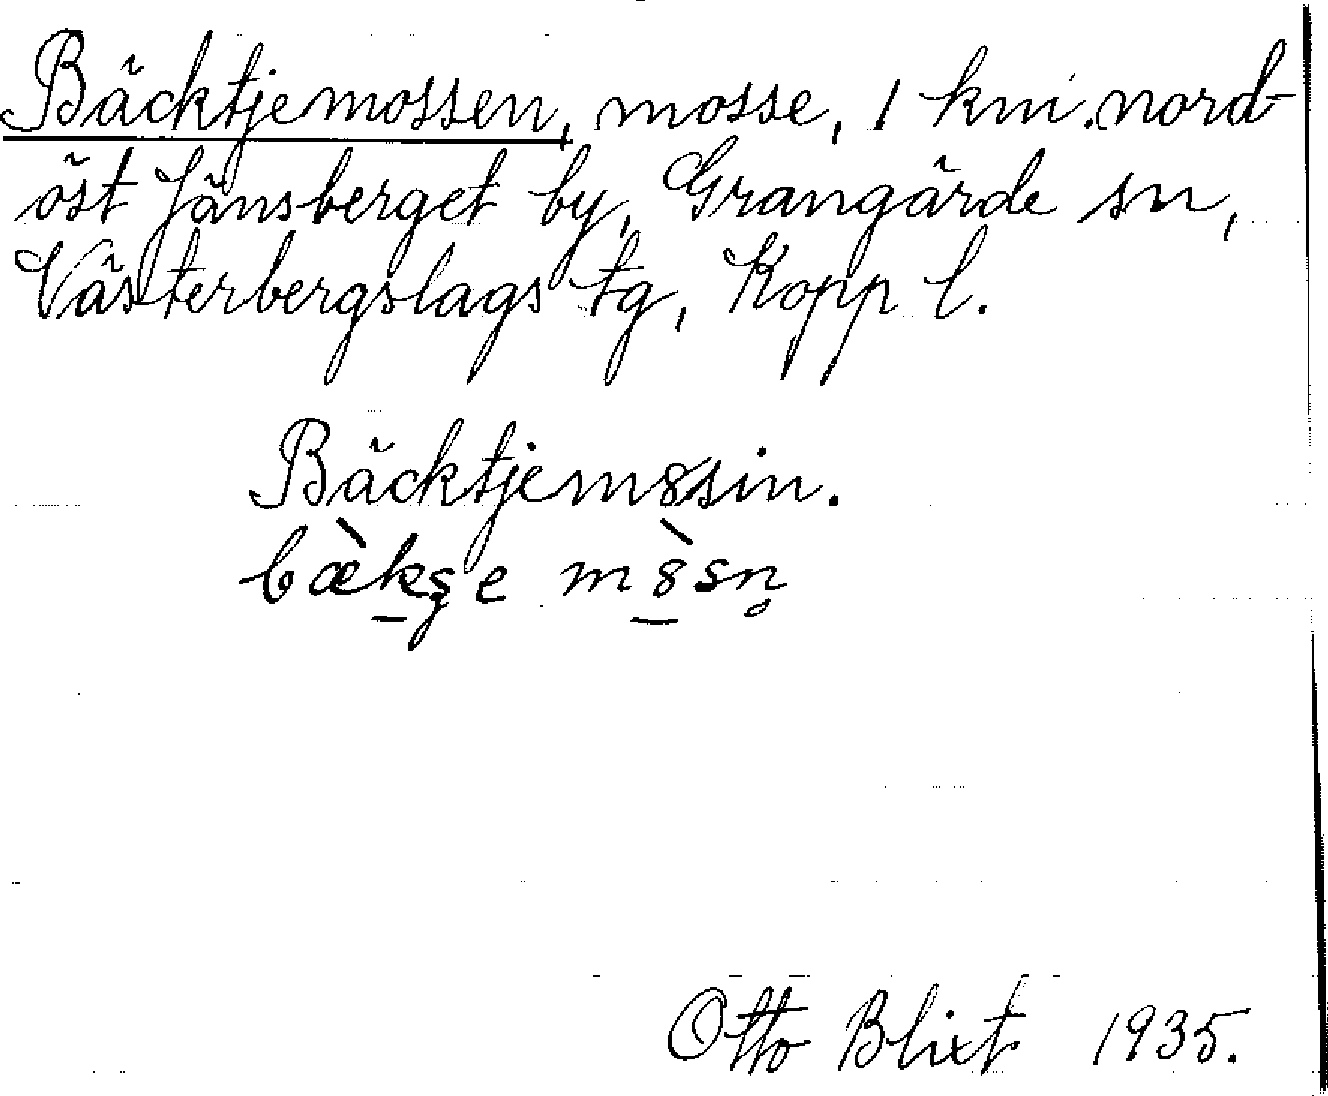 Bäcktjemossen, mosse, 1 km. nord-
öst Jänsberget by, Grangärde sn,
Västerbergslags tg, Kopp l.
Bäcktjem8sin.
bæ̀kşe m8̀sn̥
Otto Blixt 1935.